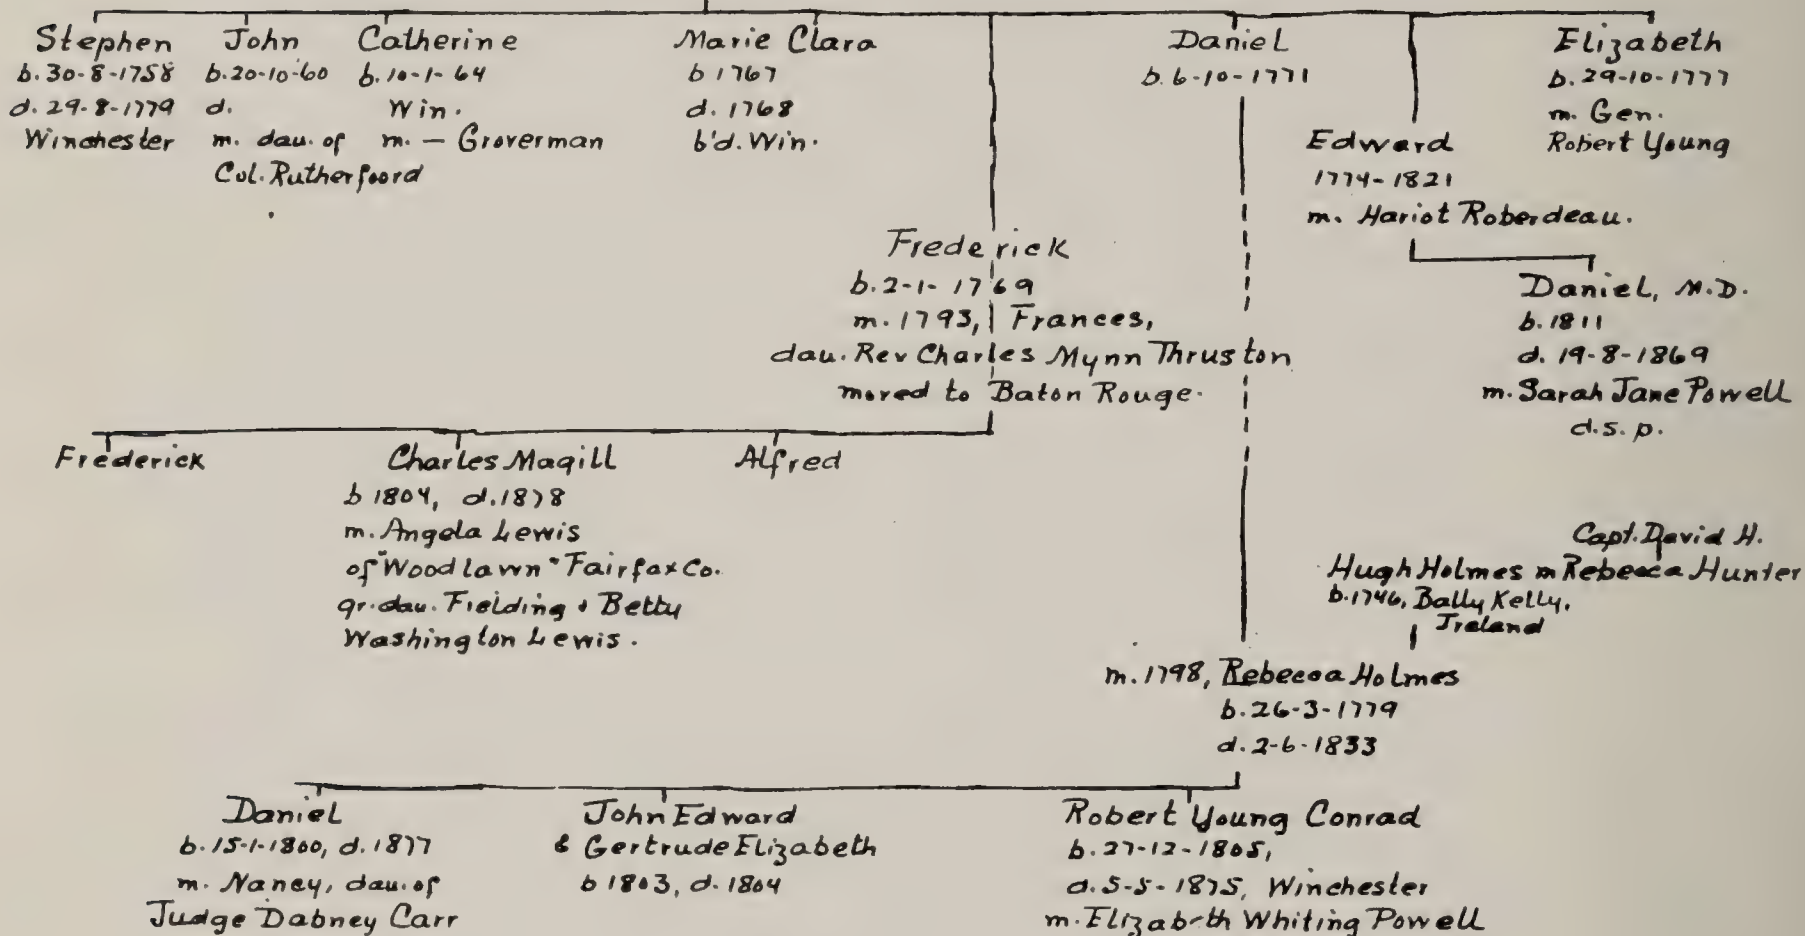 Stephen
b. 30-8-1758
d. 29-8-1779
Winchester
John
b. 20-10-60
d.
m. dau. of
Col. Rutherfoord
Catherine
b. 10-1-64
Win.
m. — Groverman
Marie Clara
b 1767
d. 1768
b'd. Win.
Daniel
b. 6-10-1771
Edward
1774-1821
m. Hariot Roberdeau.
Elizabeth
b. 29-10-1777
m. Gen.
Robert Young
Frederick
b. 2-1-1769
m. 1793, Frances,
dau. Rev Charles Mynn Thruston
moved to Baton Rouge.
Daniel, M.D.
b. 1811
d. 19-8-1869
m. Sarah Jane Powell
d.s.p.
Frederick
Charles Magill
b 1804, d. 1878
m. Angela Lewis
of "Woodlawn" Fairfax Co.
gr. dau. Fielding & Betty
Washington Lewis.
Alfred
Capt. David H.
Hugh Holmes m Rebecca Hunter
b. 1746, Bally Kelly,
Ireland
m. 1798, Rebecca Holmes
b. 26-3-1779
d. 2-6-1833
Daniel
b. 15-1-1800, d. 1877
m. Nancy, dau. of
Judge Dabney Carr
John Edward
& Gertrude Elizabeth
b 1803, d. 1804
Robert Young Conrad
b. 27-12-1805,
d. 5-5-1875, Winchester
m. Elizabeth Whiting Powell